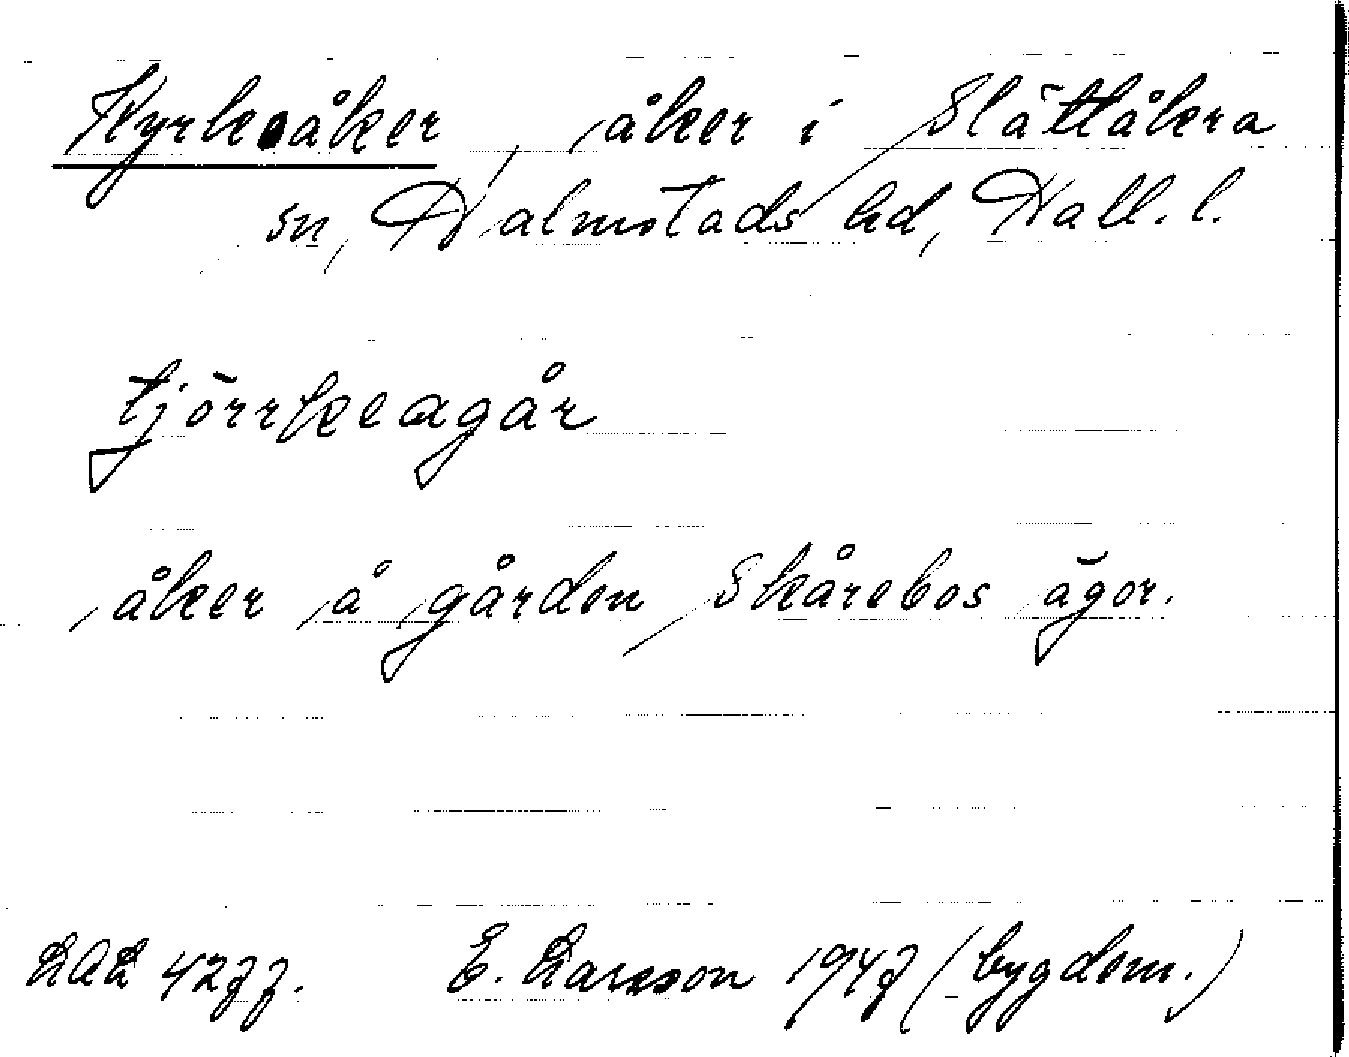 Kyrkoåker, åker i Slättåkra
sn, Halmstads hd, Hall. l.
tjörrkeagår
åker å gården Skårebos ägor.
LAL 4277. E. Larsson 1947 (bygdem.)